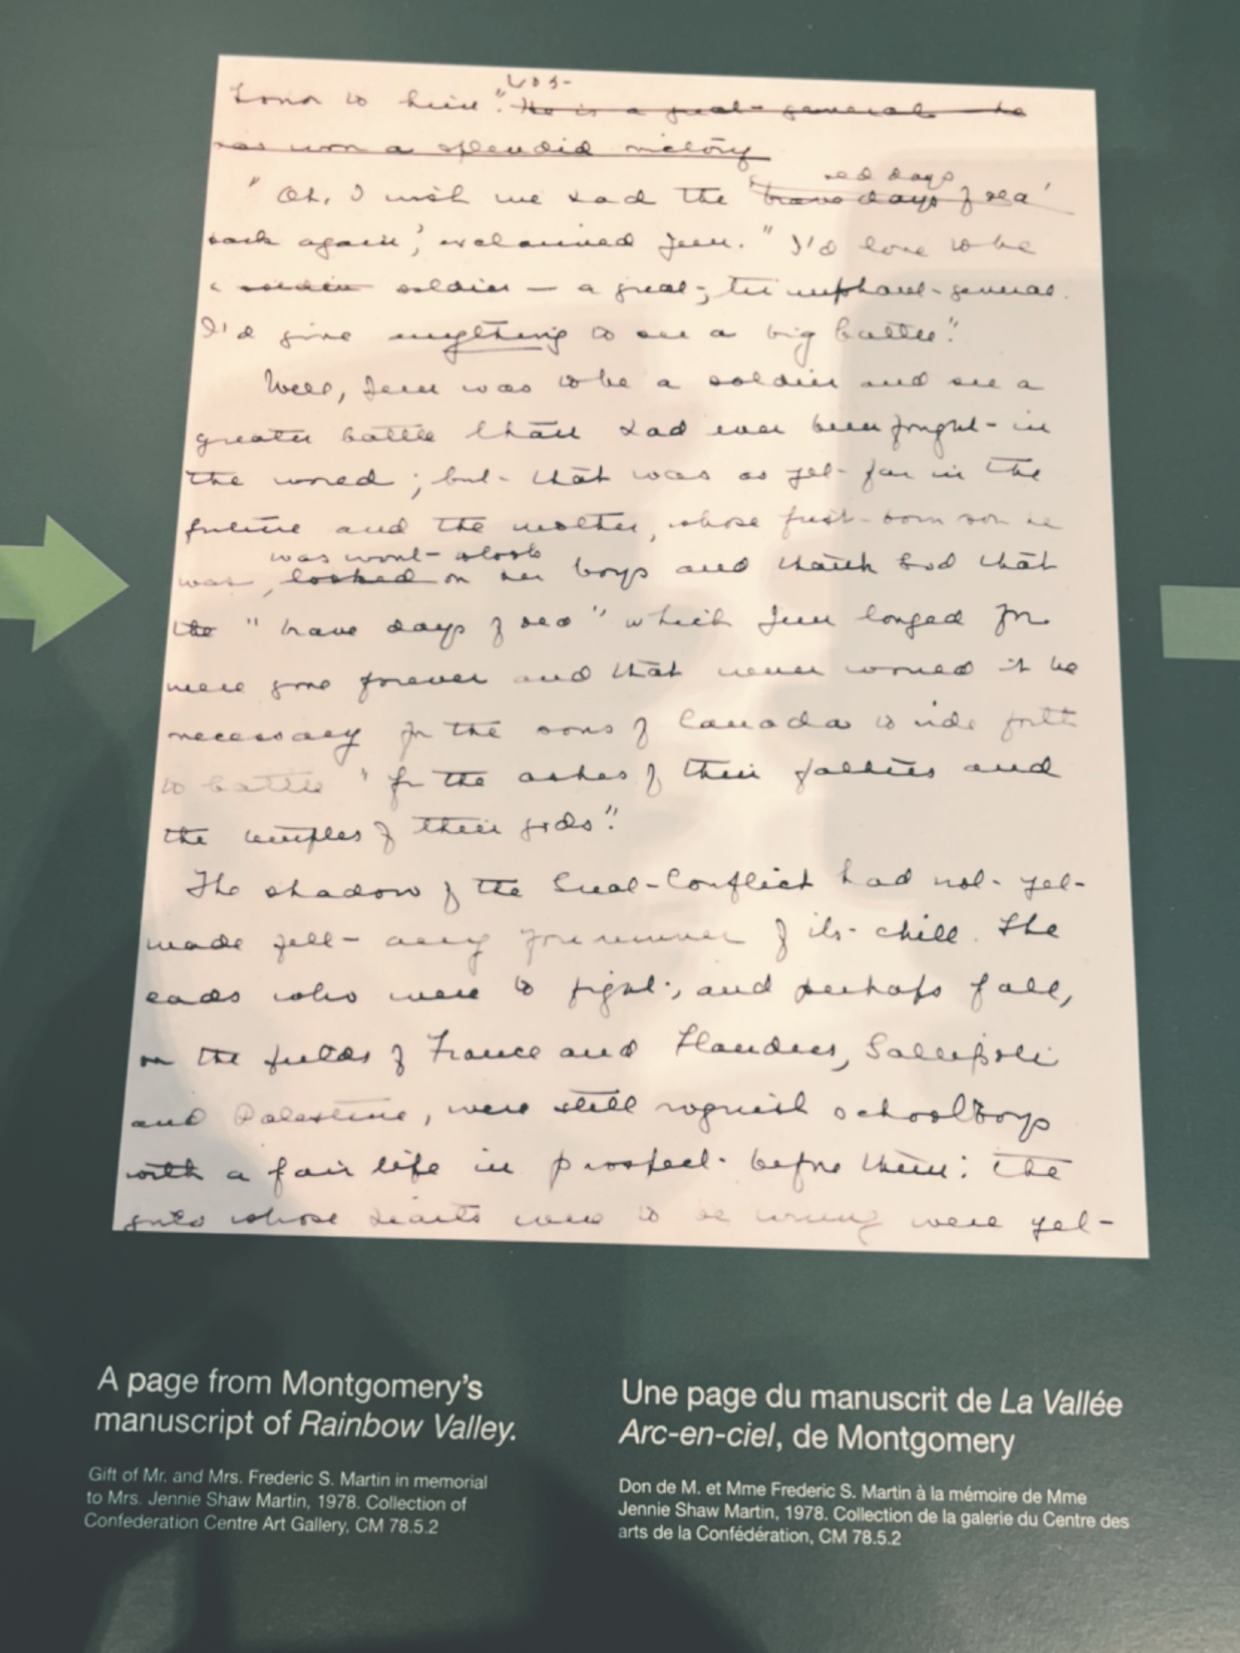 honor to him". V 03-
He is a great general – he
has won a splendid victory
old days
"Oh, I wish we had the 'brave days of old'
back again," exclaimed Jem. "I'd love to be
a soldier – a great, triumphant general.
I'd give anything to see a big battle".
Well, Jem was to be a soldier and see a
greater battle than had ever been fought in
the world; but that was as yet far in the
future and the mother, whose first-born son he
was wont to look
was, looked on her boys and thank God that
the "brave days of old" which Jem longed for
were gone forever and that never would it be
necessary for the sons of Canada to ride forth
to battle "for the ashes of their fathers and
the temples of their gods".
The shadow of the Great Conflict had not yet
made felt any forerunner of its chill. The
lads who were to fight, and perhaps fall,
on the fields of France and Flanders, Gallipoli
and Palestine, were still roguish schoolboys
with a fair life in prospect before them: the
girls whose hearts were to be wrung were yet
A page from Montgomery's
manuscript of Rainbow Valley.
Gift of Mr. and Mrs. Frederic S. Martin in memorial
to Mrs. Jennie Shaw Martin, 1978. Collection of
Confederation Centre Art Gallery, CM 78.5.2
Une page du manuscrit de La Vallée
Arc-en-ciel, de Montgomery
Don de M. et Mme Frederic S. Martin à la mémoire de Mme
Jennie Shaw Martin, 1978. Collection de la galerie du Centre des
arts de la Confédération, CM 78.5.2